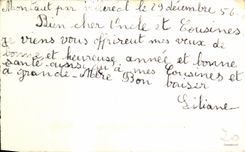 Montaut par le 29 décembre 56
Bien cher Oncle et Cousines
je viens vous offrirent mes veux de
bonne et heureuse année et bonne
santé ainsi qu'à mes Cousines et
à grande-Mère Bon baiser
Liliane